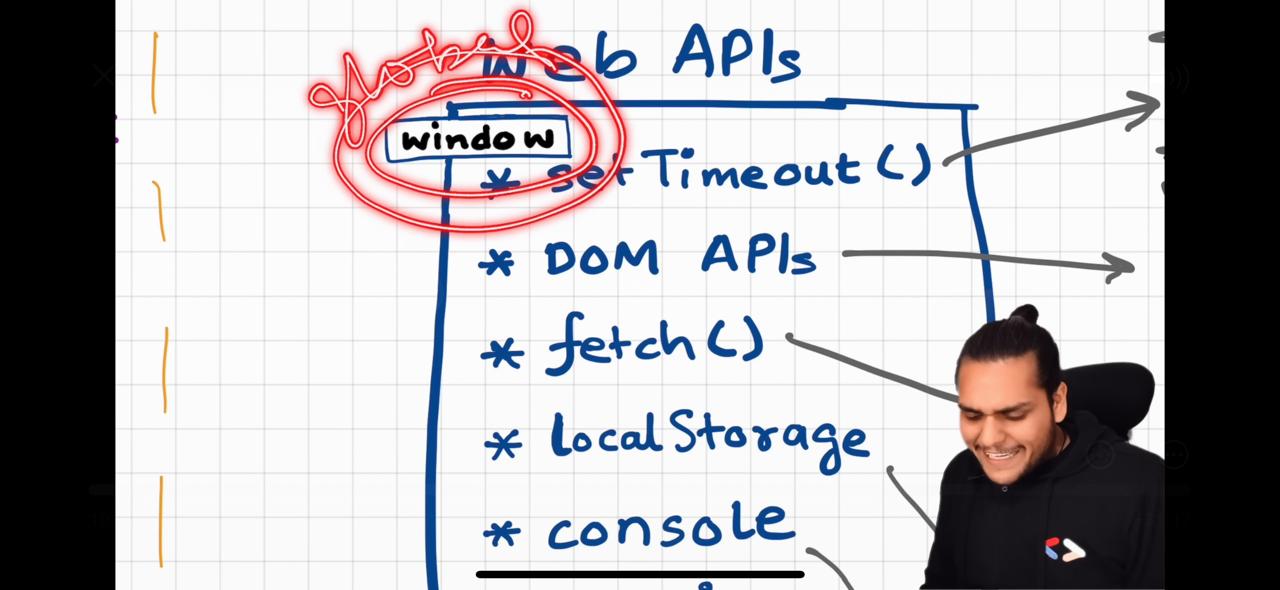 global
Web APIs
window
* setTimeout()
* DOM APIs
* fetch()
* localStorage
* console